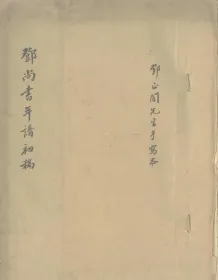 鄧尚書年譜初稿
鄧正閡先生手寫本